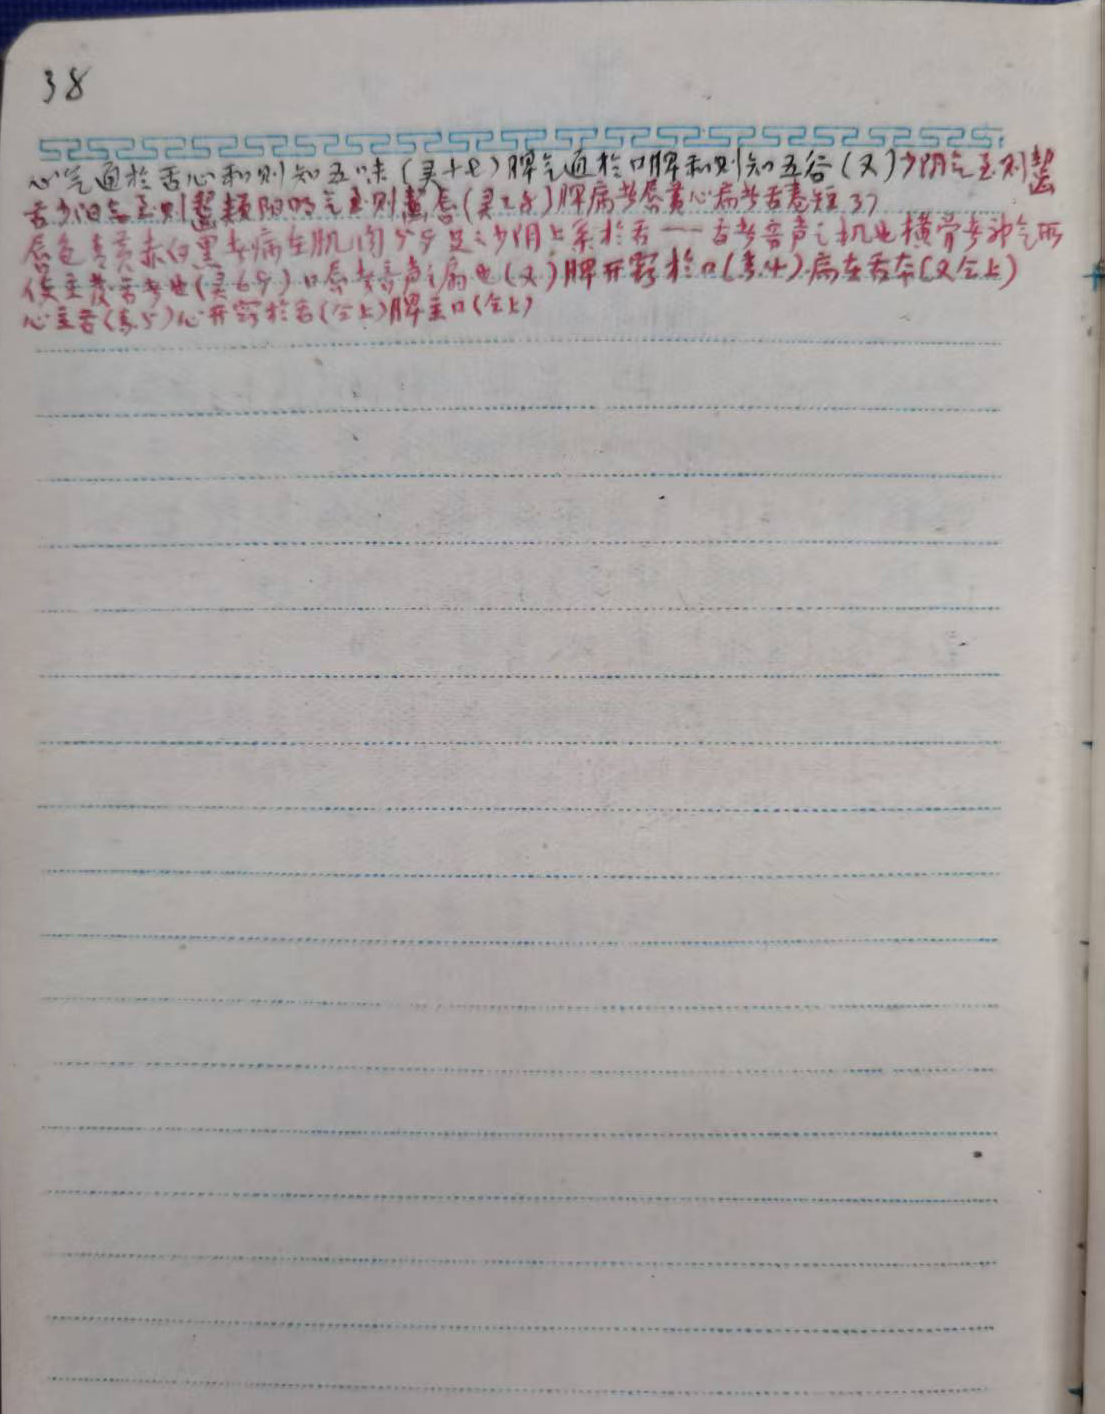 38
心气通於舌心和则知五味(灵十七)脾气通於口脾和则知五谷(又)少阴气至则齧
舌少阳气至则齧颊阳明气至则齧唇(灵28)脾病者唇黄心病者舌卷短37
唇色青黄赤白黑者病在肌肉 足之少阴上系於舌——舌者音声之机也横骨者神气所
使主发舌者也(灵69)口唇者音声之扇也(又)脾开窍於口(素4)病在舌本(又仝上)
心主舌(素5)心开窍於舌(仝上)脾主口(仝上)